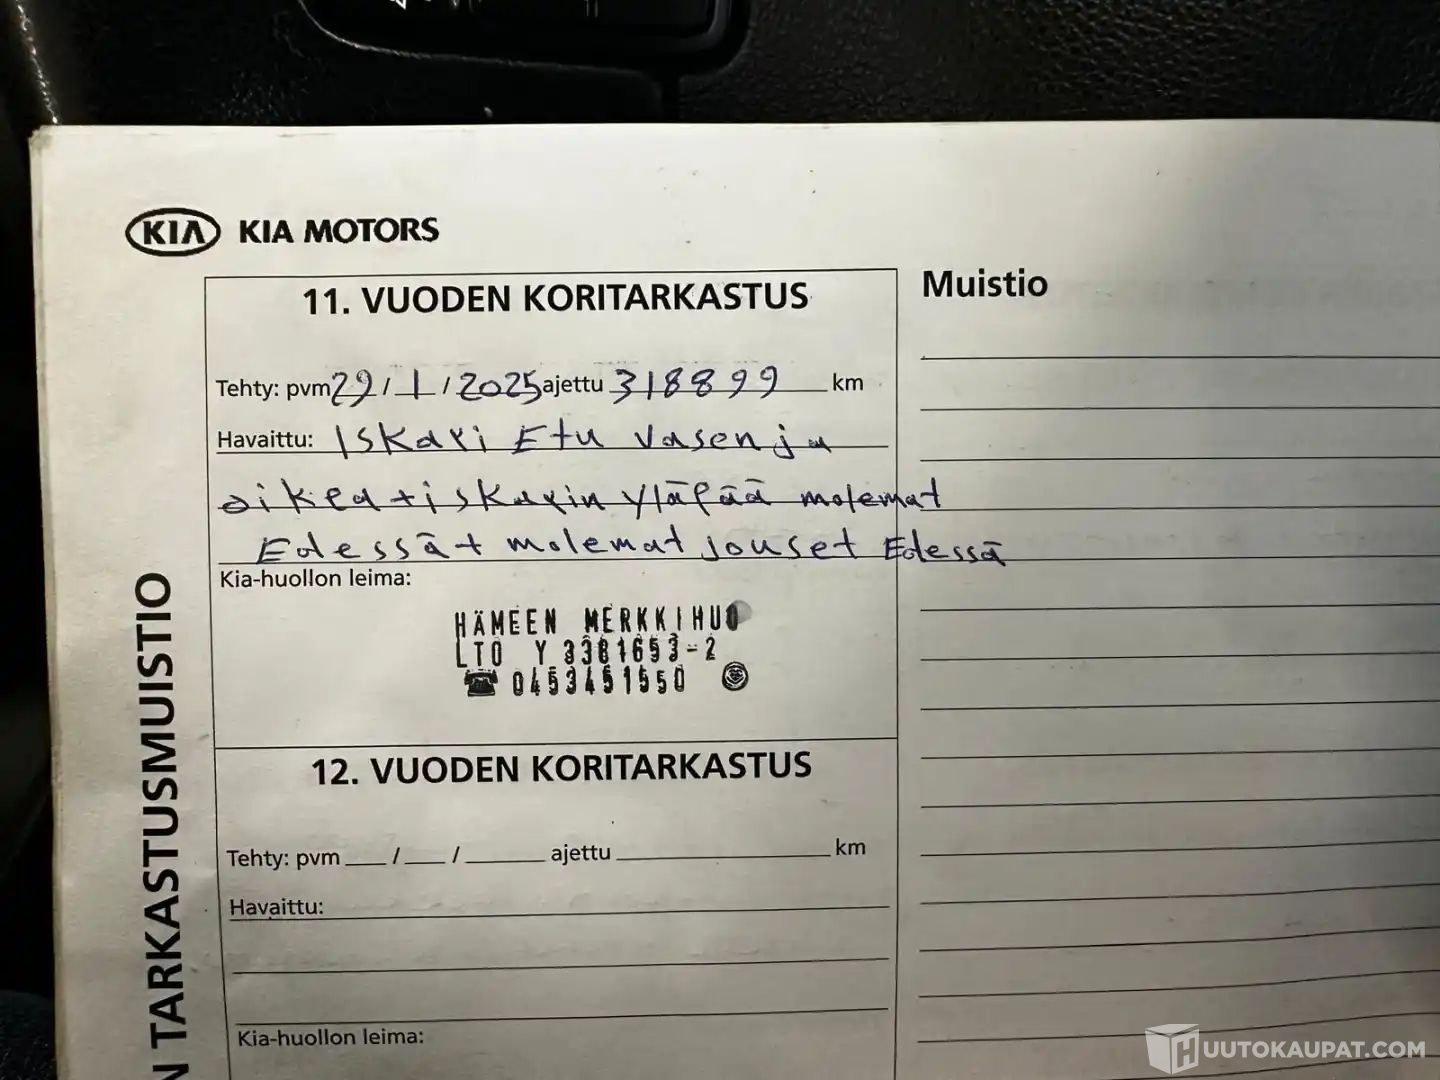 KIA KIA MOTORS
11. VUODEN KORITARKASTUS
Tehty: pvm 29/1/2025 ajettu 318899 km
Havaittu: Iskari Etu vasen ja
oikea + iskarin yläpää molemat
Edessä + molemat jouset Edessä
Kia-huollon leima:
HÄMEEN MERKKIHUO
LTO Y 3381653-2
0453451550
12. VUODEN KORITARKASTUS
Tehty: pvm / / ajettu km
Havaittu:
Kia-huollon leima:
Muistio
N TARKASTUSMUISTIO
HUUTOKAUPAT.COM